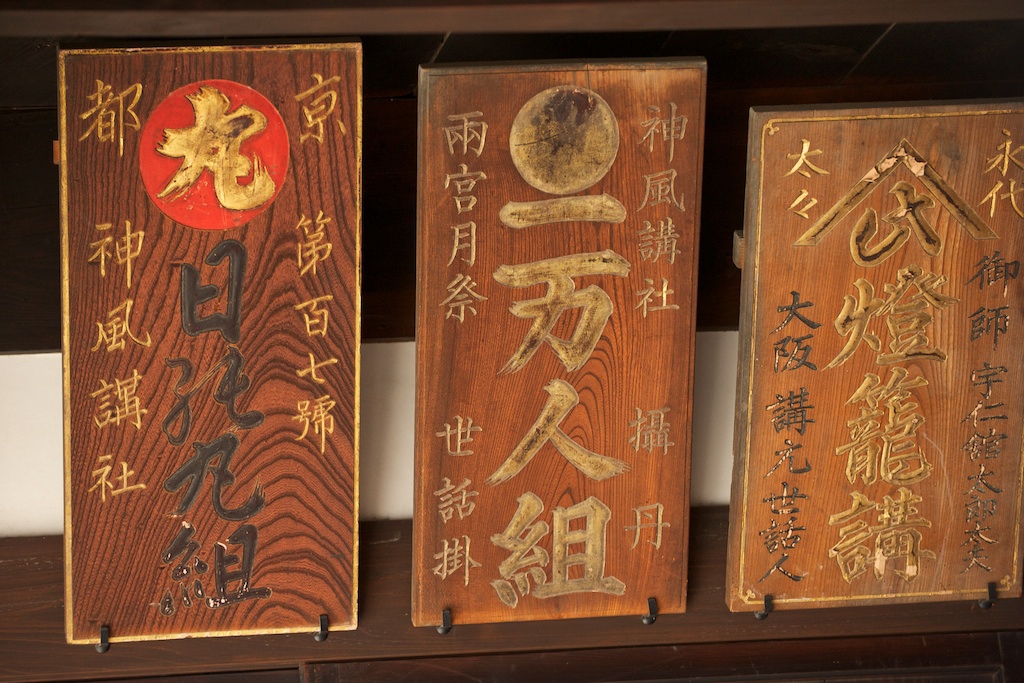 京
都
丸
第百七號
神風講社
日丸組
神風講社
攝丹
一万人組
兩宮月祭
世話掛
永代
太々
御師
宇仁舘太郎太夫
燈籠講
大阪
講元世話人